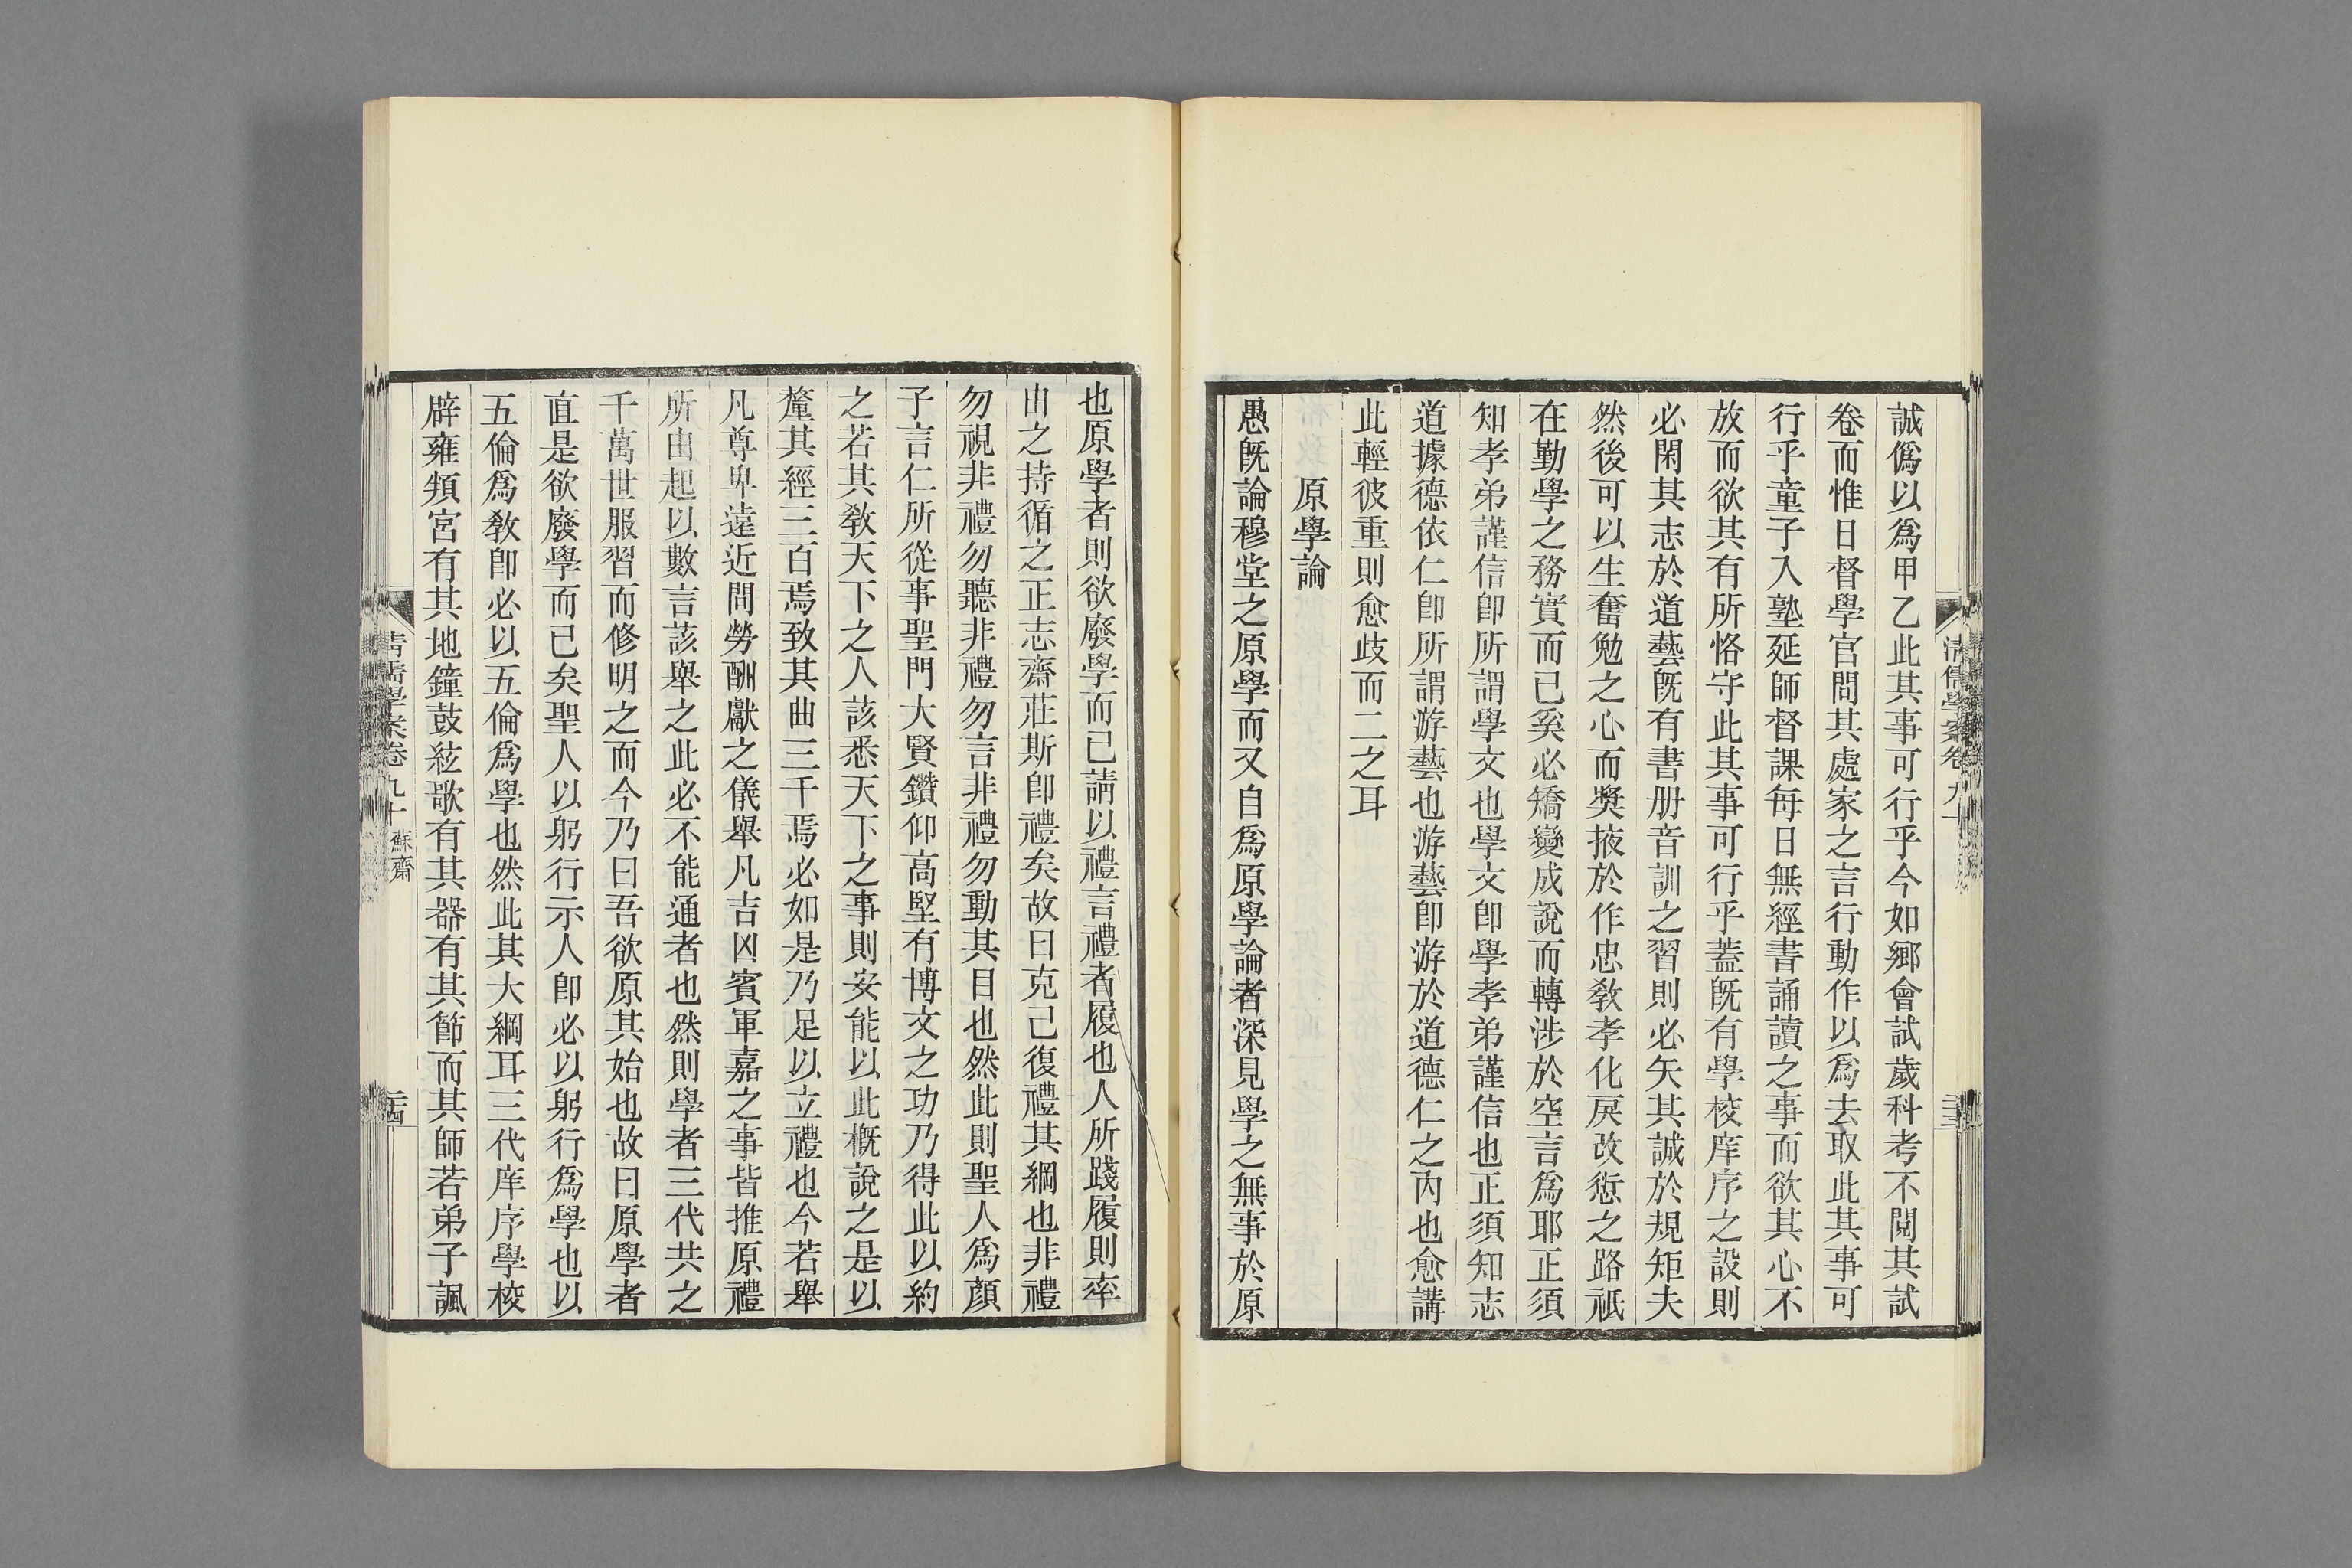 誠僞以爲甲乙此其事可行乎今如鄉會試歲科考不閱其試
卷而惟日督學官問其處家之言行動作以爲去取此其事可
行乎童子入塾延師督課每日無經書誦讀之事而欲其心不
放而欲其有所恪守此其事可行乎蓋旣有學校庠序之設則
必閑其志於道藝旣有書册音訓之習則必矢其誠於規矩夫
然後可以生奮勉之心而獎掖於作忠敎孝化戾改愆之路祇
在勤學之務實而已奚必矯變成說而轉涉於空言爲耶正須
知孝弟謹信卽所謂學文也學文卽學孝弟謹信也正須知志
道據德依仁卽所謂游藝也游藝卽游於道德仁之內也愈講
此輕彼重則愈歧而二之耳
原學論
愚旣論穆堂之原學而又自爲原學論者深見學之無事於原
清儒學案卷九十
也原學者則欲廢學而已請以禮言禮者履也人所踐履則率
由之持循之正志齋莊斯卽禮矣故曰克己復禮其綱也非禮
勿視非禮勿聽非禮勿言非禮勿動其目也然此則聖人爲顏
子言仁所從事聖門大賢鑽仰高堅有博文之功乃得此以約
之若其敎天下之人該悉天下之事則安能以此槪說之是以
釐其經三百焉致其曲三千焉必如是乃足以立禮也今若舉
凡尊卑遠近問勞酬獻之儀舉凡吉凶賓軍嘉之事皆推原禮
所由起以數言該舉之此必不能通者也然則學者三代共之
千萬世服習而修明之而今乃曰吾欲原其始也故曰原學者
直是欲廢學而已矣聖人以躬行示人卽必以躬行爲學也以
五倫爲敎卽必以五倫爲學也然此其大綱耳三代庠序學校
辟雍頖宮有其地鐘鼓絃歌有其器有其節而其師若弟子諷
清儒學案卷九十 蘇齋